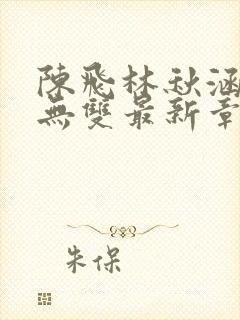 陳飛林秋涵
無雙最新章
朱保